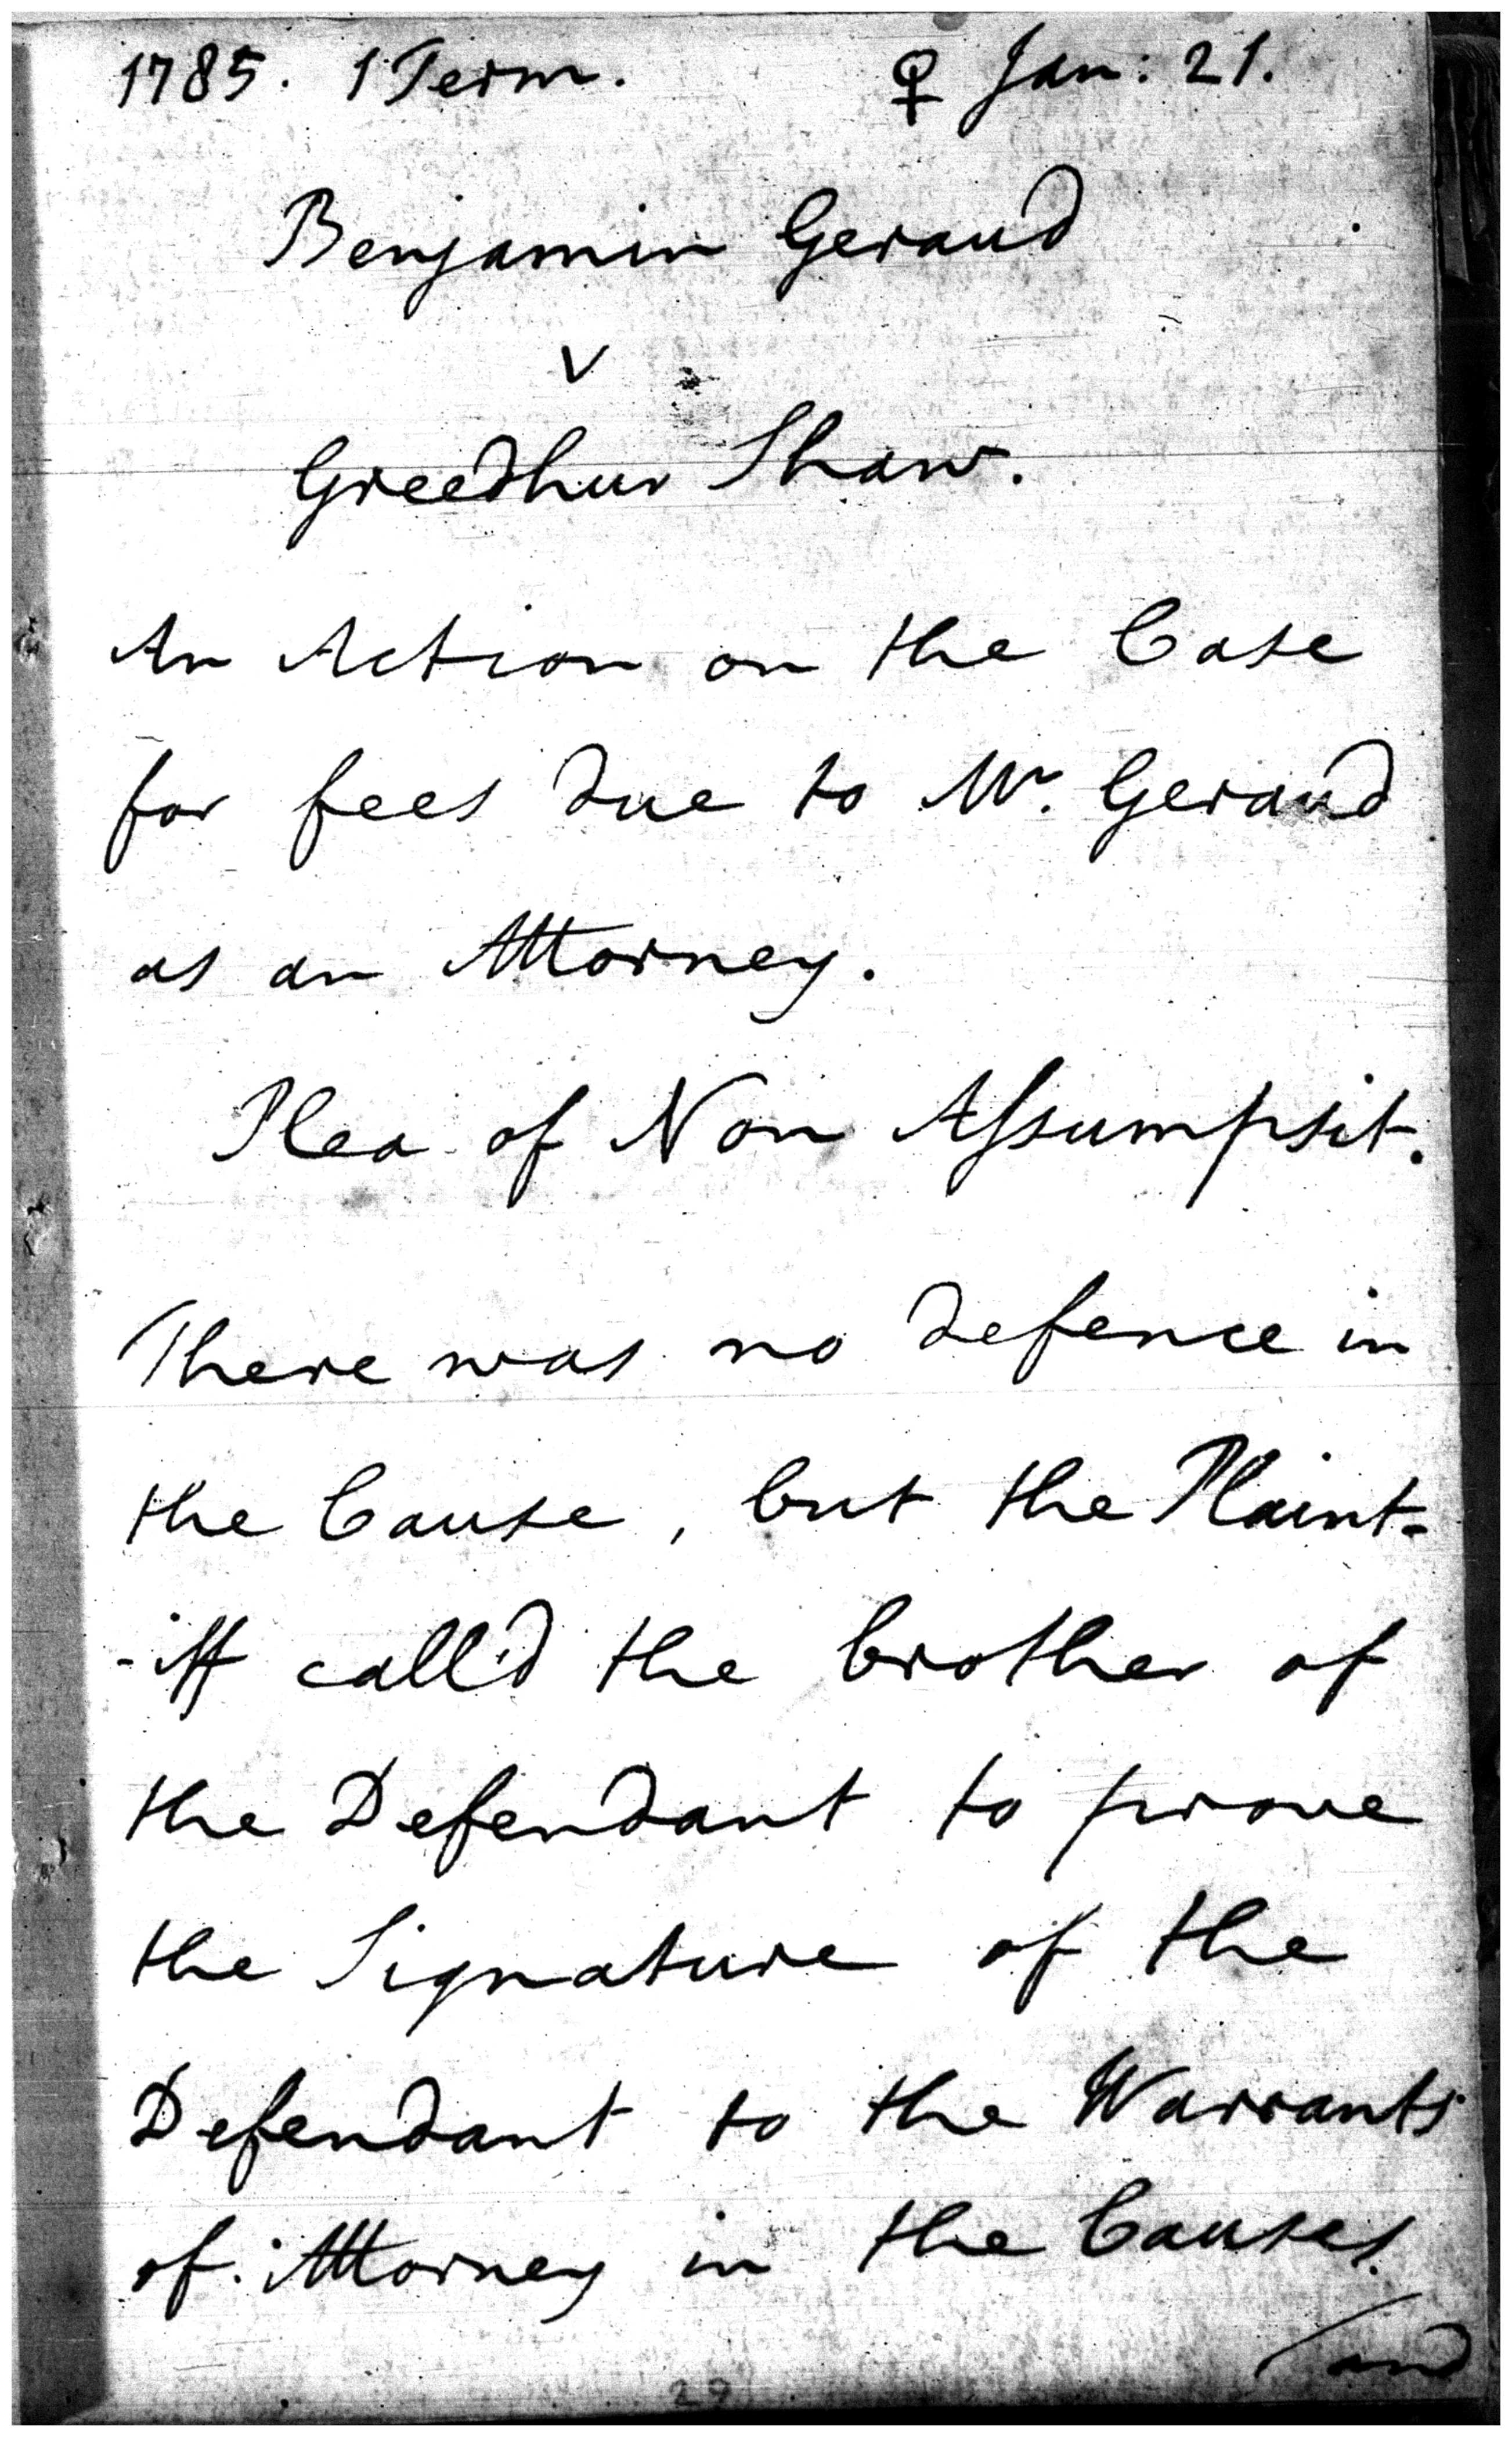 1785. 1 Term. ♀ Jan: 21.
Benjamin Geraud
v
Greedhur Shaw.
An Action on the Case
for fees due to Mr. Geraud
as an Attorney.
Plea of Non Aſsumpsit.
There was no defence in
the Cause, but the Plaint-
-iff call'd the brother of
the Defendant to prove
the Signature of the
Defendant to the Warrants
of Attorney in the Causes.
/and
29